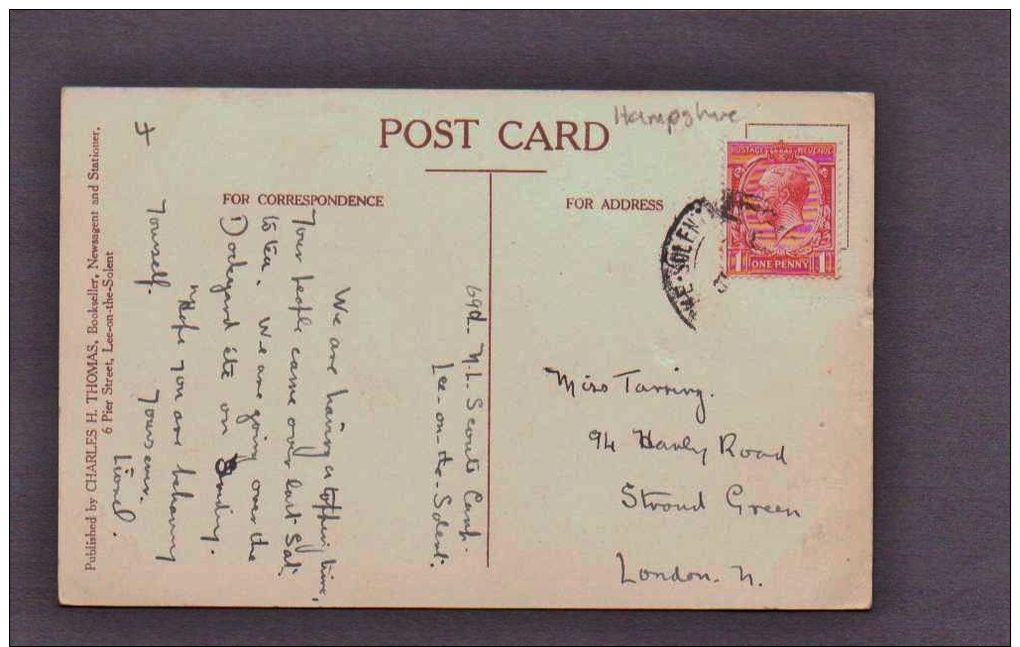 Hampshire
POST CARD
FOR CORRESPONDENCE
FOR ADDRESS
POSTAGE REVENUE
1 ONE PENNY 1
SOLENT
69d. N.L. Scouts Camp.
Lee-on-the-Solent.
We are having a topping time,
Your people came over last Sat.
to tea. We are going over the
Dockyard etc on Sunday.
Hope you are behaving
Yourself.
Yours ever.
Lionel.
Miss Tarring.
94 Hanly Road
Stroud Green
London. N.
Published by CHARLES H. THOMAS, Bookseller, Newsagent and Stationer,
6 Pier Street, Lee-on-the-Solent